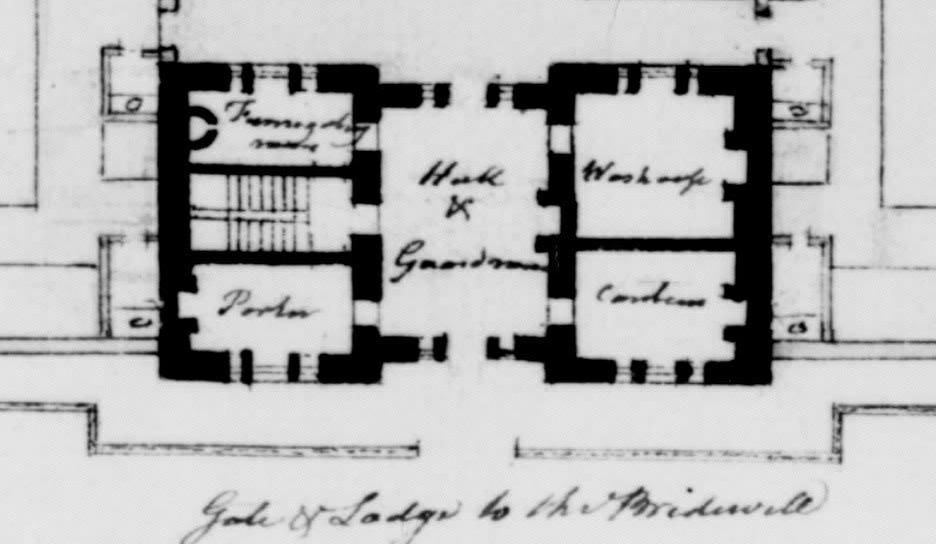 Fumigating
room
Hall
&
Guardroom
Washouse
Porter
Gate & Lodge to the Bridewell